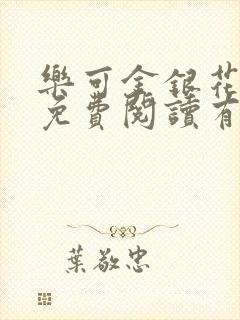 樂可金銀花
免費閱讀有
葉敬忠